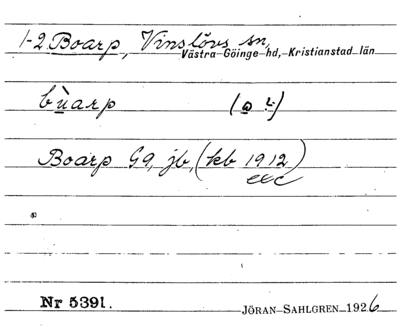 1-2 Boarp, Vinslövs sn,
Västra Göinge hd, Kristianstad län
bùarp
Boarp G9, jb, (kb 1912)
exc
Nr 5391.
JÖRAN SAHLGREN 1926